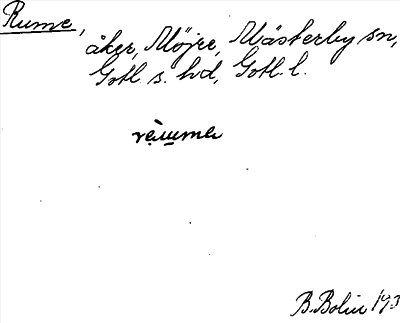 Rume,
åker, Möjre, Mästerby sn,
Gotl. s. hd, Gotl. l.
B. Bolin 193